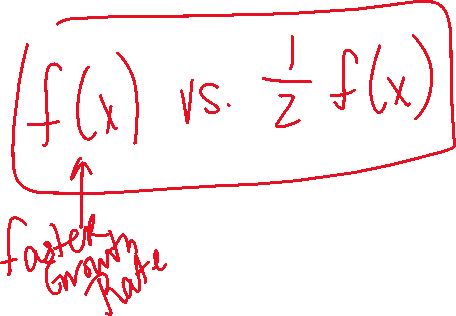 f(x) vs. 1/2 f(x)
faster
Growth
Rate